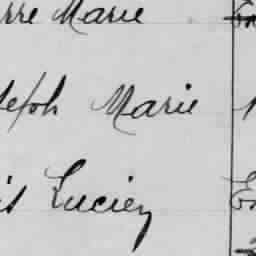 rre Marie
seph Marie
is Lucien